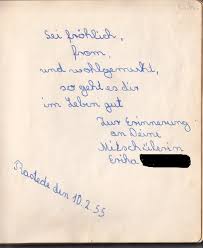 Sei fröhlich,
from,
und wohlgemutd,
so geht es dir
im Leben gut
Zur Erinnerung
an Deine
Mitschülerin
Erika
Rastede den 10.2.55